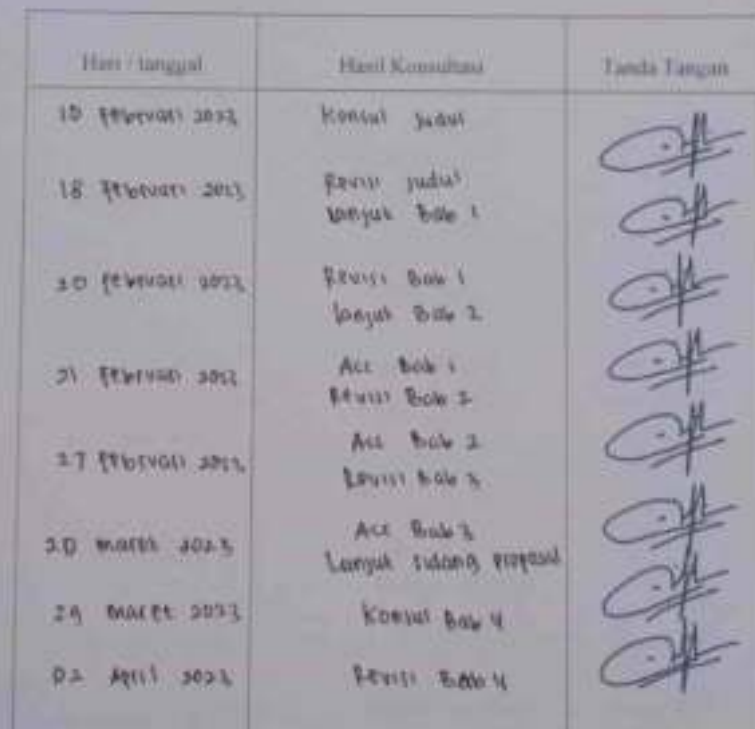 Hari / tanggal Hasil Konsultasi Tanda Tangan
10 Februari 2023 Konsul Judul
18 Februari 2023 Revisi judul
Lanjut Bab 1
20 Februari 2023 Revisi Bab 1
Lanjut Bab 2
21 Februari 2023 Acc Bab 1
Revisi Bab 2
27 Februari 2023 Acc Bab 2
Revisi Bab 3
20 maret 2023 Acc Bab 3
Lanjut sidang proposal
29 maret 2023 Konsul Bab 4
02 April 2023 Revisi Bab 4